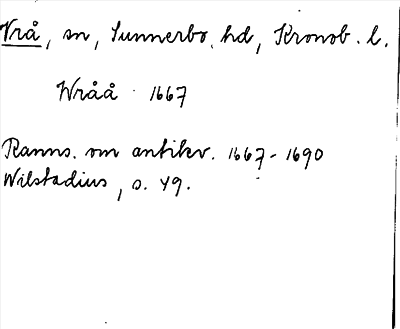 Vrå, sn, Sunnerbo hd, Kronob. l.
Wråå 1667
Ranns. om antikv. 1667-1690
Wilstadius, s. 49.